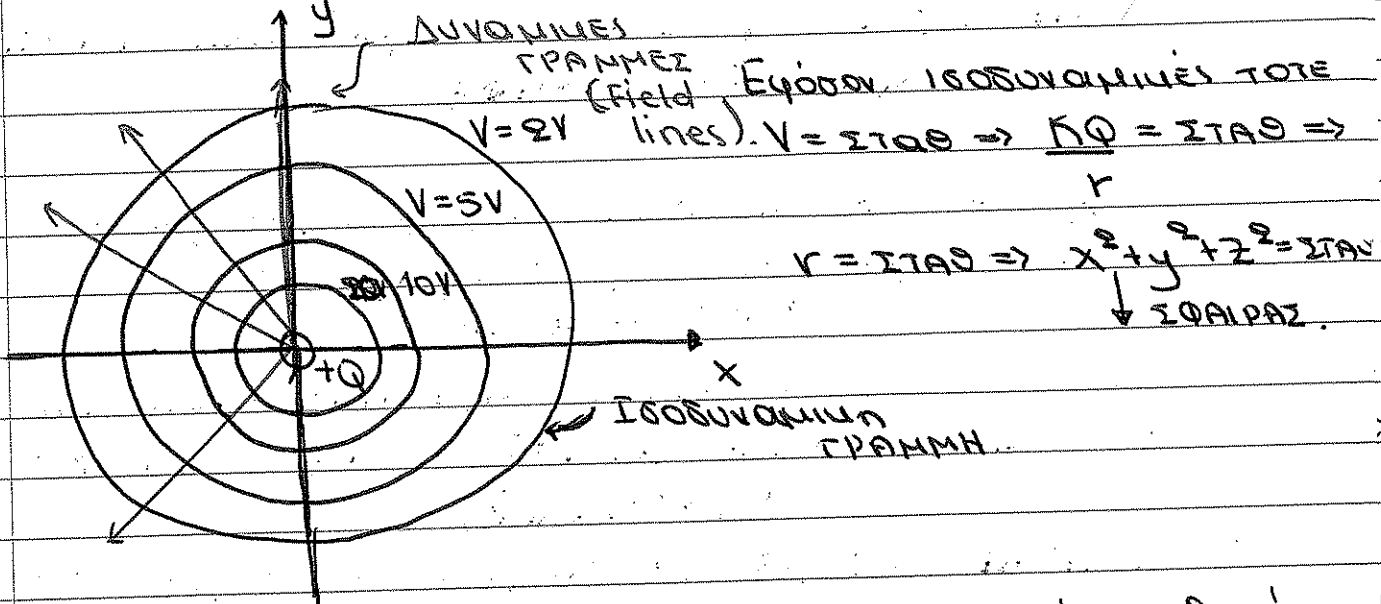 y
Δυναμικές
ΓΡΑΜΜΕΣ
(Field
lines).
Εφόσον ισοδυναμικές τότε
V = ΣΤαθ => KQ = ΣΤΑΘ =>
r
V=2V
V=5V
10V
r = ΣΤΑΘ => x² + y² + z² = ΣΤΑΘ
ΣΦΑΙΡΑΣ.
+Q
x
Ισοδυναμικη
ΓΡΑΜΜΗ.